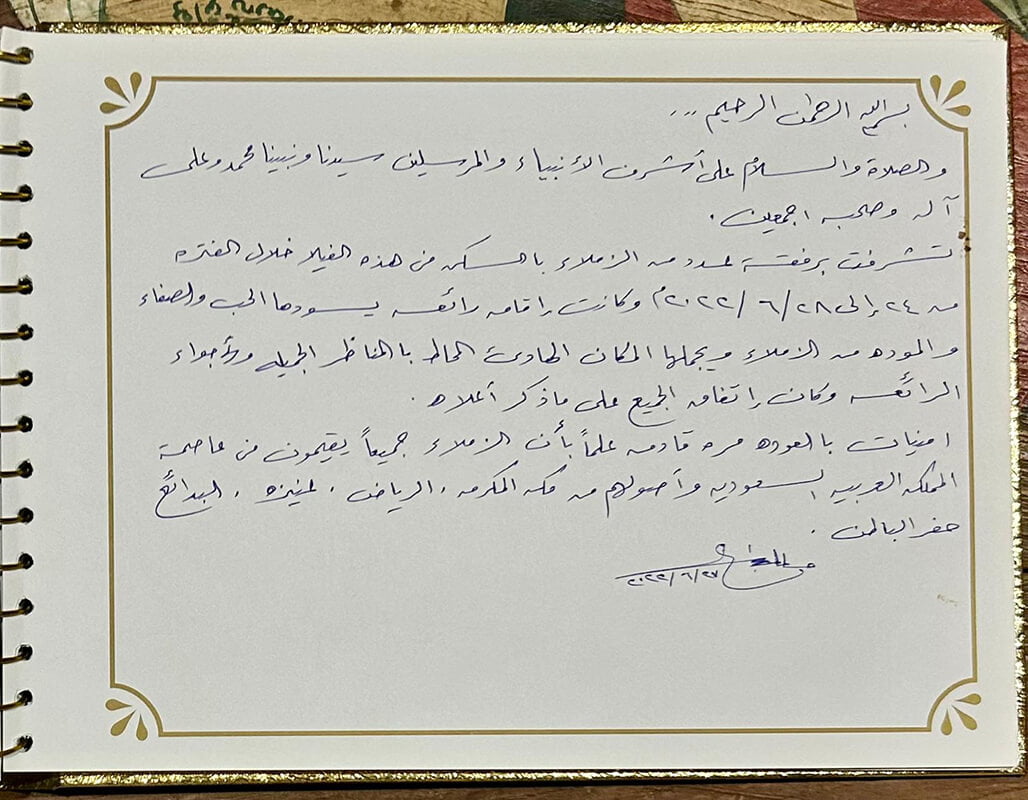 بسم الله الرحمن الرحيم ...
والصلاة والسلام على أشرف الأنبياء والمرسلين سيدنا ونبينا محمد وعلى
آله وصحبه اجمعين .
تشرفت برفقة عدد من الزملاء بالسكن في هذه الفيلا خلال الفتره
من ٢٤ إلى ٢٨ / ٦ / ٢٠٢٢م وكانت إقامه رائعه يسودها الحب والصفاء
والموده من الزملاء ويجملها المكان الهادئ المحاط بالمناظر الجميله والأجواء
الرائعه وكان إتفاق الجميع على ماذكر أعلاه .
امنيات بالعوده مره قادمه علماً بأن الزملاء جميعاً يقيمون في عاصمة
المملكه العربيه السعوديه وأصولهم من مكه المكرمه ، الرياض ، عنيزه ، البدائع
حفر الباطن .
٢٠٢٢/٦/٢٧